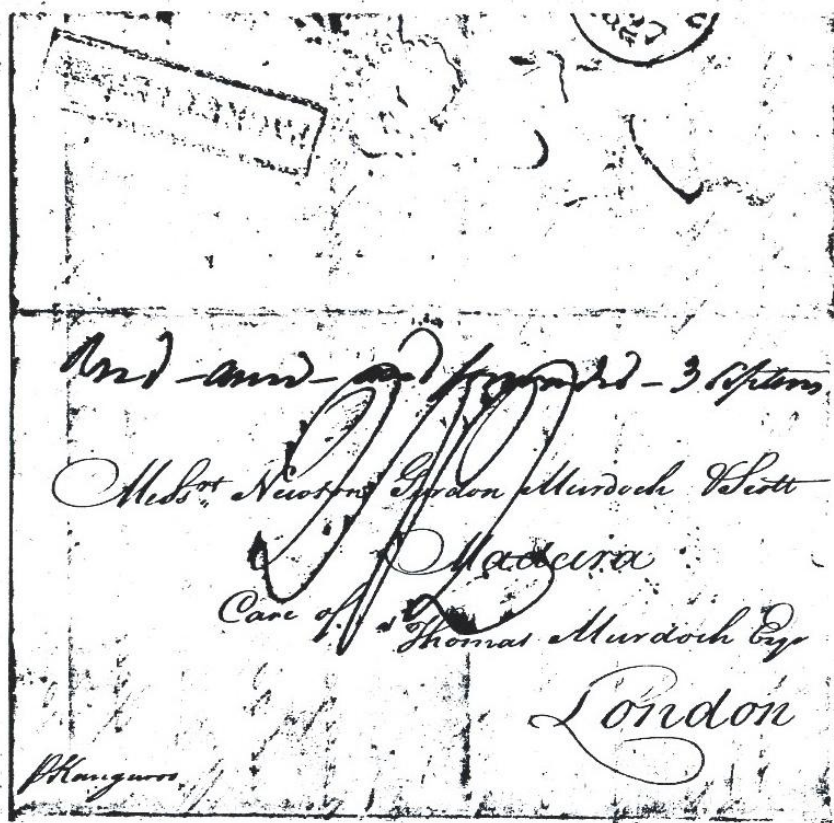 Recd and forwarded – 3 Septem
Messrs Newton Gordon Murdoch & Scott
Madeira
Care of Thomas Murdoch Esqr
London
p Kangaroo